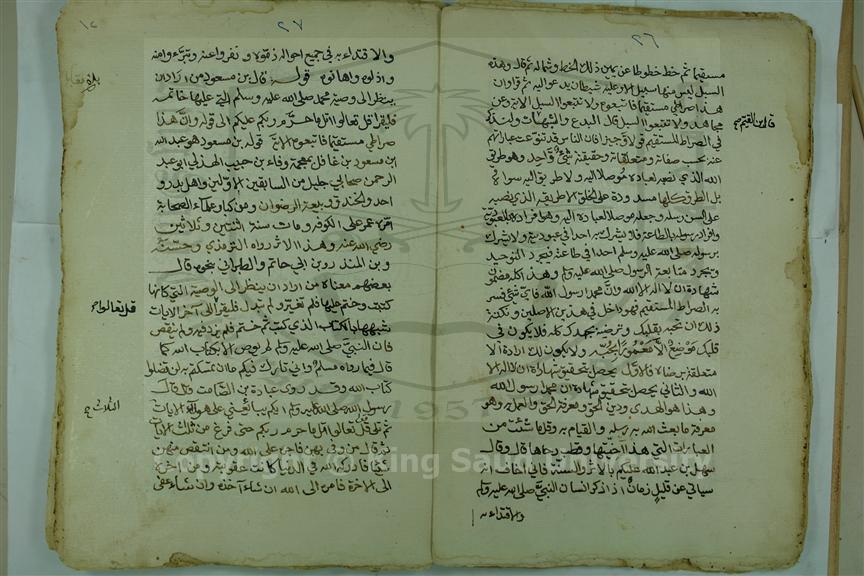 ٢٦
مستقيما ثم خط خطوطا عن يمين ذلك الخط وشماله ثم قال وهذه
السبل ليس منها سبيل الا وعليه شيطان يدعو اليه ثم قرأ وان
هذا صراطي مستقيما فاتبعوه ولا تتبعوا السبل الاية وعن
مجاهد ولا تتبعوا السبل قال البدع والشبهات ولنذكر
في الصراط المستقيم قولا وجيزا فان الناس قد تنوعت عباراتهم
عنه بحسب صفاته ومتعلقاته وحقيقته شيء واحد وهو طريق
الله الذي نصبه لعباده موصلا اليه ولا طريق اليه سواه
بل الطرق كلها مسدودة على الخلق الا طريقه الذي نصبه
على السن رسله وجعله موصلا لعباده اليه وهو افراده بالعبودية
وافراد رسوله بالطاعة فلا يشرك به احدا في عبوديته ولا يشرك
برسوله صلى الله عليه وسلم احدا في طاعته فيجرد التوحيد
ويجرد متابعة الرسول صلى الله عليه وسلم وهذا كله مضمون
شهادة ان لا اله الا الله وان محمدا رسول الله فاي شيء فسر
به الصراط المستقيم فهو داخل في هذين الاصلين ونكتة
ذلك ان تحبه بقلبك وترضيه بجهدك كله فلا يكون في
قلبك موضع الا معمورا بحبه ولا يكون لك ارادة الا
متعلقة برضاه فالاول يحصل بتحقيق شهادة ان لا اله الا
الله والثاني يحصل بتحقيق شهادة ان محمدا رسول الله
وهذا هو الهدى ودين الحق ومعرفة الحق والعمل به وهو
معرفة ما بعث الله به رسله والقيام به وقل ما شئت من
العبارات التي هذا آخيتها وقطب رحاها قال وقال
سهل بن عبد الله عليكم بالاثر والسنة فاني اخاف انه
سياتي عن قليل زمان اذا ذكر انسان النبي صلى الله عليه وسلم
والاقتداء به
قال ابن القيم
٢٧
والاقتداء به في جميع احواله ذموه ونفروا عنه وتبرءوا منه
واذلوه واهانوه قوله قال ابن مسعود من اراد ان
ينظر الى وصية محمد صلى الله عليه وسلم التي عليها خاتمه
فليقرا قل تعالوا اتل ما حرم ربكم عليكم الى قوله وان هذا
صراطي مستقيما فاتبعوه الاية قوله ابن مسعود هو عبد الله
ابن مسعود بن غافل بمعجمة وفاء ابن حبيب الهذلي ابو عبد
الرحمن صحابي جليل من السابقين الاولين واهل بدر و
احد والخندق وبيعة الرضوان ومن كبار علماء الصحابة
امره عمر على الكوفة ومات سنة اثنتين وثلاثين
رضي الله عنه وهذا الاثر رواه الترمذي وحسنه
وابن المنذر وابن ابي حاتم والطبراني بنحوه قال
بعضهم معناه من اراد ان ينظر الى الوصية التي كانها
كتبت وختم عليها فلم تغير ولم تبدل فليقرا الى آخر الايات
شبهها بالكتاب الذي كتب ثم ختم فلم يزد فيه ولم ينقص
فان النبي صلى الله عليه وسلم لم يوص الا بكتاب الله كما
قال فيما رواه مسلم واني تارك فيكم ما ان تمسكتم به لن تضلوا
كتاب الله وقد روى عبادة بن الصامت قال قال
رسول الله صلى الله عليه وسلم ايكم يبايعني على هؤلاء الايات
ثم تلا قل تعالوا اتل ما حرم ربكم حتى فرغ من ثلاث الايات
ثم قال من وفى بهن فاجره على الله ومن انتقص منهن
شيئا فادركه الله في الدنيا كانت عقوبته ومن اخره
الى الاخرة فامره الى الله ان شاء آخذه وان شاء عفى
قل تعالوا
الثلاث
Copyright © King Saud University
1957